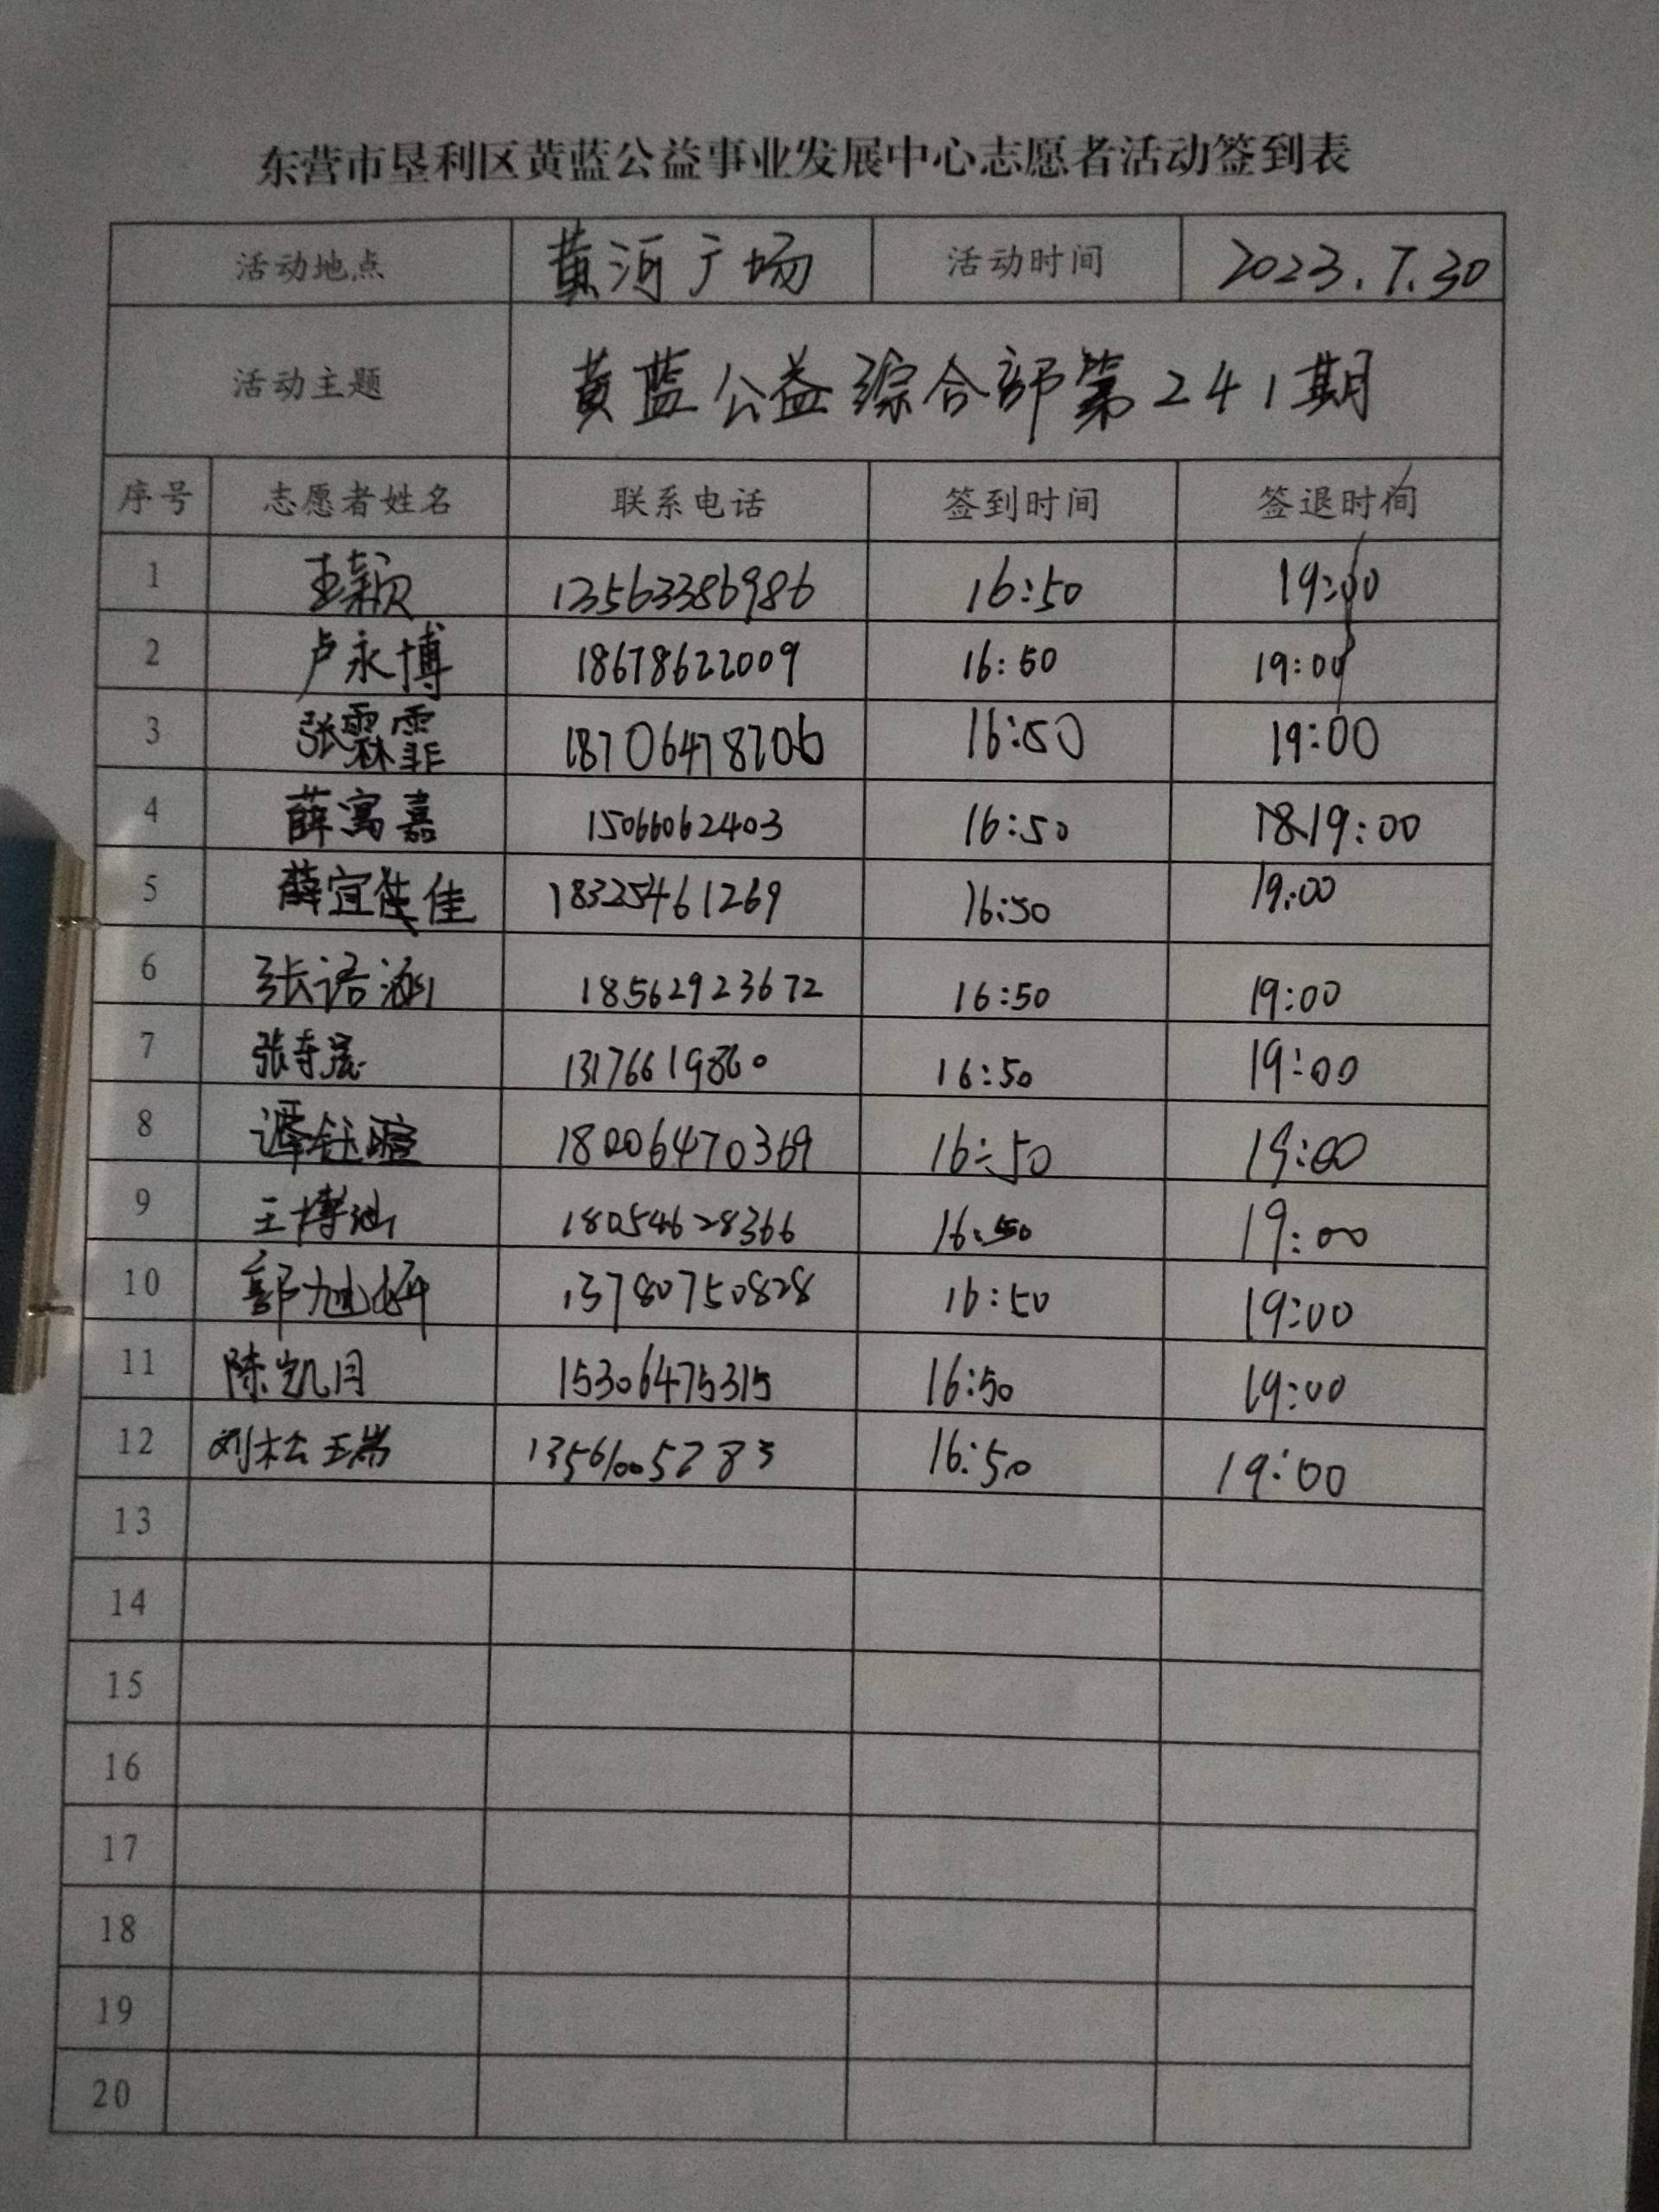 东营市垦利区黄蓝公益事业发展中心志愿者活动签到表
活动地点 黄河广场 活动时间 2023.7.30
活动主题 黄蓝公益综合部第241期
序号 志愿者姓名 联系电话 签到时间 签退时间
1 王颖 13563386986 16:50 19:00
2 卢永博 18678622009 16:50 19:00
3 张霖霏 18706478706 16:50 19:00
4 薛寓嘉 15066062403 16:50 19:00
5 薛宜佳 18325461269 16:50 19:00
6 张语涵 18562923672 16:50 19:00
7 16:50 19:00
8 谭钰暄 18006470369 16:50 19:00
9 王博汕 18054628366 16:50 19:00
10 郭旭妍 13780750828 16:50 19:00
11 陈凯月 15306475315 16:50 19:00
12 刘松瑞 13561005283 16:50 19:00
13
14
15
16
17
18
19
20